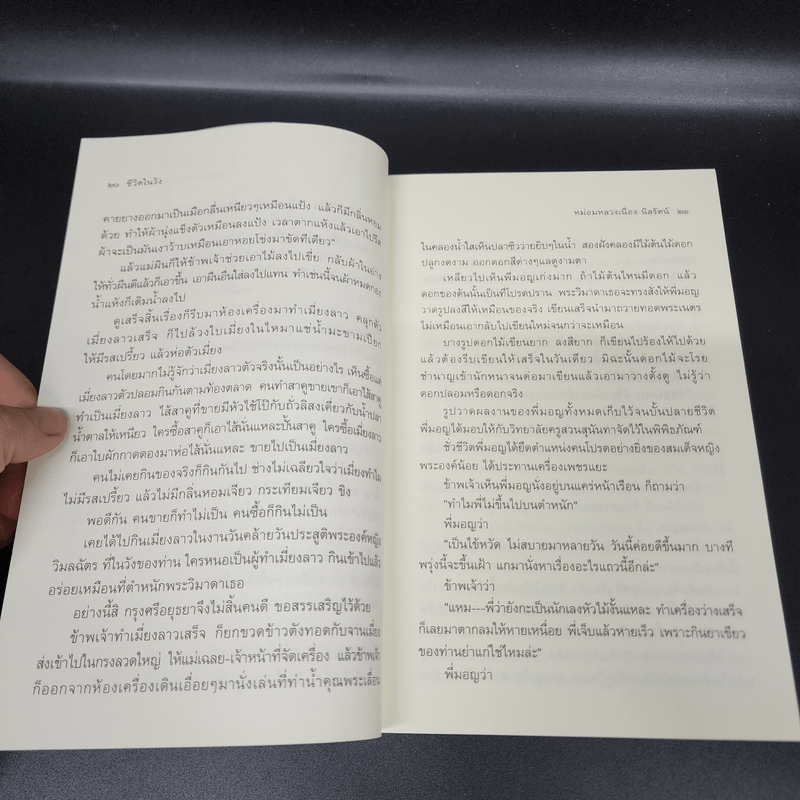 ๒๐ ชีวิตในวัง
คายยางออกมาเป็นเมือกลื่นเหนียวๆเหมือนแป้ง แล้วก็มีกลิ่นหอม
ด้วย ทำให้ผ้านุ่งแข็งตัวเหมือนลงแป้ง เวลาตากแห้งแล้วเอาไปรีด
ผ้าจะเป็นมันเงาวับเหมือนเอาหอยโข่งมาขัดทีเดียว"
แล้วแม่ผินก็ให้ข้าพเจ้าช่วยเอาไม้ลงไปเขี่ย กลับผ้าในอ่าง
ให้ทั่วผืนดีแล้วก็เอาขึ้น เอาผืนอื่นใส่ลงไปแทน ทำเช่นนี้จนผ้าหมดกอง
น้ำแห้งก็เติมน้ำลงไป
ดูเสร็จสิ้นเรื่องก็รีบมาห้องเครื่องมาทำเมี่ยงลาว คลุกตัว
เมี่ยงลาวเสร็จ ก็ไปล้วงใบเมี่ยงในไหมาแช่น้ำมะขามเปียก
ให้มีรสเปรี้ยว แล้วห่อตัวเมี่ยง
คนโดยมากไม่รู้จักว่าเมี่ยงลาวตัวจริงนั้นเป็นอย่างไร เห็นซื้อแต่
เมี่ยงลาวตัวปลอมกินกันตามท้องตลาด คนทำสาคูขายเขาก็เอาไส้สาคู
ทำเป็นเมี่ยงลาว ไส้สาคูที่ขายมีหัวใช้โป๊กับถั่วลิสงเคี่ยวกับน้ำปลา
น้ำตาลให้เหนียว ใครซื้อสาคูก็เอาไส้นั่นแหละปั้นสาคู ใครซื้อเมี่ยงลาว
ก็เอาใบผักกาดดองมาห่อไส้นั่นแหละ ขายไปเป็นเมี่ยงลาว
คนไม่เคยกินของจริงก็กินกันไป ช่างไม่เฉลียวใจว่าเมี่ยงทำไม
ไม่มีรสเปรี้ยว แล้วไม่มีกลิ่นหอมเจียว กระเทียมเจียว ขิง
พอดีกัน คนขายก็ทำไม่เป็น คนซื้อก็กินไม่เป็น
เคยได้ไปกินเมี่ยงลาวในงานวันคล้ายวันประสูติพระองค์หญิง
วิมลฉัตร ที่ในวังของท่าน ใครหนอเป็นผู้ทำเมี่ยงลาว กินเข้าไปแล้ว
อร่อยเหมือนที่ตำหนักพระวิมาดาเธอ
อย่างนี้สิ กรุงศรีอยุธยาจึงไม่สิ้นคนดี ขอสรรเสริญไว้ด้วย
ข้าพเจ้าทำเมี่ยงลาวเสร็จ ก็ยกขวดข้าวตังทอดกับจานเมี่ยง
ส่งเข้าไปในกรงลวดใหญ่ ให้แม่เฉลย-เจ้าหน้าที่จัดเครื่อง แล้วข้าพเจ้า
ก็ออกจากห้องเครื่องเดินเอื่อยๆมานั่งเล่นที่ท่าน้ำคุณพระเลื่อน
หม่อมหลวงเนื่อง นิลรัตน์ ๒๑
ในคลองน้ำใสเห็นปลาซิวว่ายยิบๆในน้ำ สองฝั่งคลองมีไม้ต้นไม้ดอก
ปลูกงดงาม ออกดอกสีต่างๆแลดูงามตา
เหลียวไปเห็นพี่มอญเก่งมาก ถ้าไม้ต้นไหนมีดอก แล้ว
ดอกของต้นนั้นเป็นที่โปรดปราน พระวิมาดาเธอจะทรงสั่งให้พี่มอญ
วาดรูปลงสีให้เหมือนของจริง เขียนเสร็จนำมาถวายทอดพระเนตร
ไม่เหมือนเอากลับไปเขียนใหม่จนกว่าจะเหมือน
บางรูปดอกไม้เขียนยาก ลงสียาก ก็เขียนไปร้องไห้ไปด้วย
แล้วต้องรีบเขียนให้เสร็จในวันเดียว มิฉะนั้นดอกไม้จะโรย
ชำนาญเข้านักหนาจนต่อมาเขียนแล้วเอามาวางตั้งดู ไม่รู้ว่า
ดอกปลอมหรือดอกจริง
รูปวาดผลงานของพี่มอญทั้งหมดเก็บไว้จนบั้นปลายชีวิต
พี่มอญได้มอบให้กับวิทยาลัยครูสวนสุนันทาจัดไว้ในพิพิธภัณฑ์
ชั่วชีวิตพี่มอญได้ยึดตำแหน่งคนโปรดอย่างยิ่งของสมเด็จหญิง
พระองค์น้อย ได้ประทานเครื่องเพชรแยะ
ข้าพเจ้าเห็นพี่มอญนั่งอยู่บนแคร่หน้าเรือน ก็ถามว่า
"ทำไมพี่ไม่ขึ้นไปบนตำหนัก"
พี่มอญว่า
"เป็นไข้หวัด ไม่สบายมาหลายวัน วันนี้ค่อยดีขึ้นมาก บางที
พรุ่งนี้จะขึ้นเฝ้า แกมานั่งหาเรื่องอะไรแถวนี้อีกล่ะ"
ข้าพเจ้าว่า
"แหม---พี่ว่ายังกะเป็นนักเลงหัวไม้งั้นแหละ ทำเครื่องว่างเสร็จ
ก็เลยมาตากลมให้หายเหนื่อย พี่เจ็บแล้วหายเร็ว เพราะกินยาเขียว
ของท่านย่าแก่ใช่ไหมล่ะ"
พี่มอญว่า